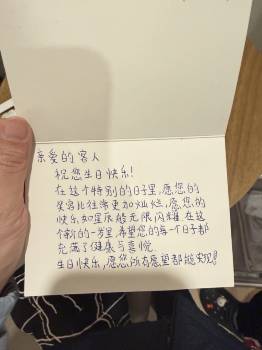 亲爱的客人
祝您生日快乐!
在这个特别的日子里,愿您的
笑容比往常更加灿烂,愿您的
快乐如星辰般无限闪耀.在这
个新的一岁里,希望您的每一个日子都
充满了健康与喜悦.
生日快乐,愿您所有愿望都能实现!